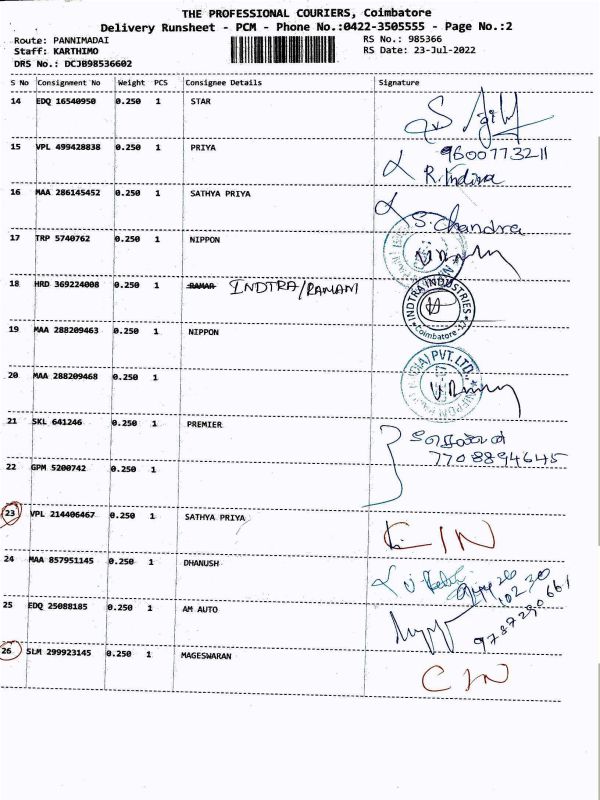 THE PROFESSIONAL COURIERS, Coimbatore
Delivery Runsheet - PCM - Phone No.:0422-3505555 - Page No.:2
Route: PANNIMADAI RS No.: 985366
Staff: KARTHIMO RS Date: 23-Jul-2022
DRS No.: DCJB98536602
S No Consignment No Weight PCS Consignee Details Signature
14 EDQ 16540950 0.250 1 STAR
15 VPL 499428838 0.250 1 PRIYA 9600773211
R. Indira
16 MAA 286145452 0.250 1 SATHYA PRIYA
S. Chandra
17 TRP 5740762 0.250 1 NIPPON
18 HRD 369224008 0.250 1 RAMAR INDTRA/RAMAM INDTRA INDUSTRIES Coimbatore
19 MAA 288209463 0.250 1 NIPPON
20 MAA 288209468 0.250 1 (INDIA) PVT. LTD.
21 SKL 641246 0.250 1 PREMIER
7708894645
22 GPM 5200742 0.250 1
23 VPL 214406467 0.250 1 SATHYA PRIYA CIN
24 MAA 857951145 0.250 1 DHANUSH
25 EDQ 25088185 0.250 1 AM AUTO 9787290661
26 SLM 299923145 0.250 1 MAGESWARAN CIN